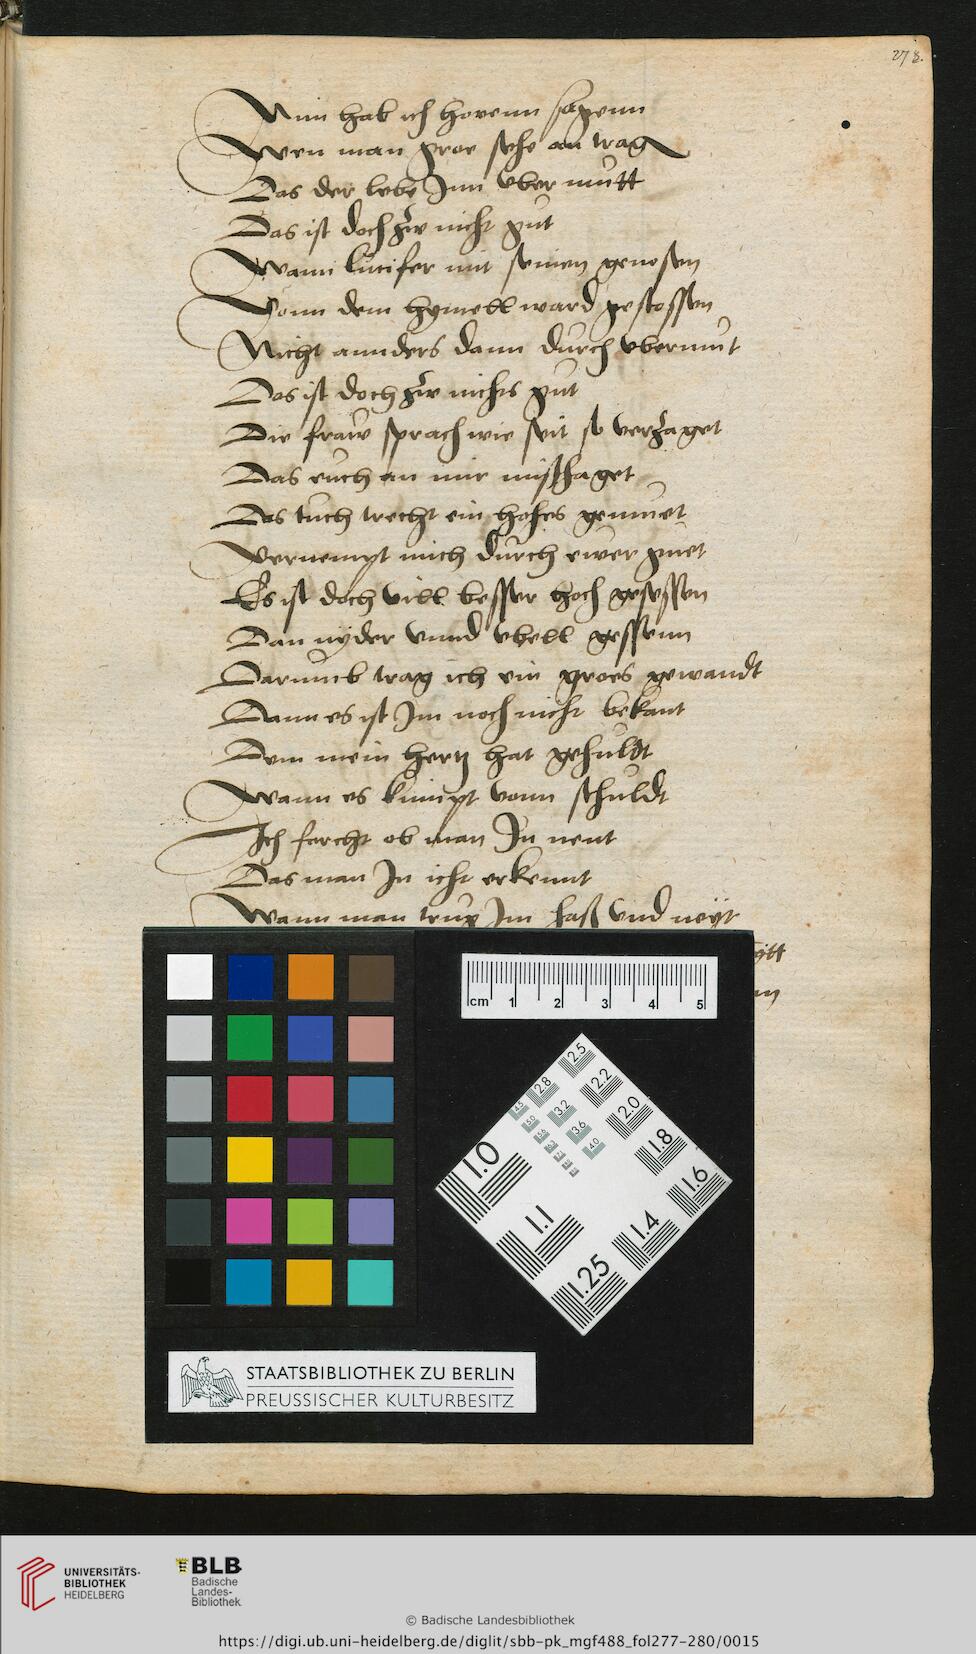 278.
Nun hab ich horenn sagenn
Wen man groe sehe an trag
Das der lebe Inn vber mutt
Das ist doch zw nicht gut
Wann lucifer mit seinen genosen
Vonn dem hymell ward gestossen
Nicht annders dann durch vbermut
Das ist doch zw nichts gut
Die fraw sprach wie seit so verzaget
Das euch an mir mißhaget
Das tuch trecht ein hohes gemuet
Vernempt mich durch ewer guet
Es ist doch vill besser hoch gesessen
Dan nyder vnnd vbell gessenn
Darumb trag ich ein groes gewandt
Dann es ist Im noch nicht bekant
Dem mein hertz hat gehuldt
Wann es kumpt vonn schuldt
Ich forcht ob man In nent
Das man In icht erkennt
Wann man trug Im haß vnd neyt
cm 1 2 3 4 5
2.5
2.8 2.2
4.5 3.2 2.0
5.0 3.6 1.8
4.0
1.0 1.6
1.1 1.4
1.25
STAATSBIBLIOTHEK ZU BERLIN
PREUSSISCHER KULTURBESITZ
UNIVERSITÄTS-
BIBLIOTHEK
HEIDELBERG
BLB
Badische
Landes-
Bibliothek
© Badische Landesbibliothek
https://digi.ub.uni-heidelberg.de/diglit/sbb-pk_mgf488_fol277-280/0015